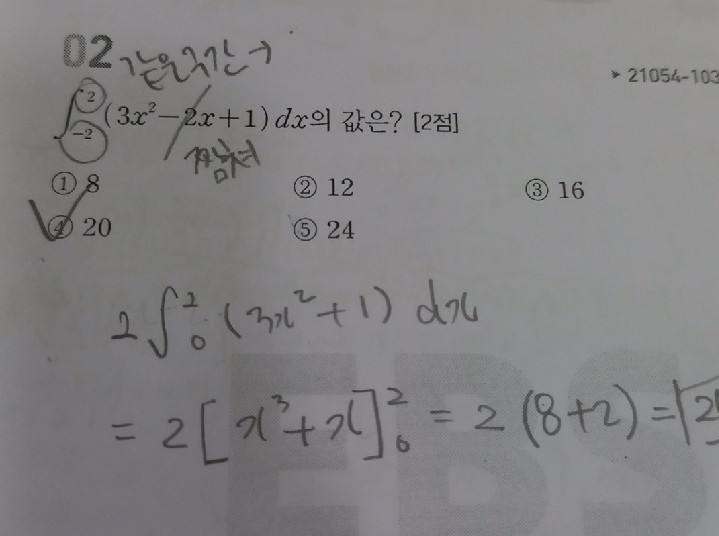 02 같은구간→
▸ 21054-103
∫_{-2}^{2} (3x²-2x+1) dx의 값은? [2점]
① 8 ② 12 ③ 16
④ 20 ⑤ 24
2∫_{0}^{2} (3x²+1) dx
= 2[x³+x]_{0}^{2} = 2(8+2) =
EBS